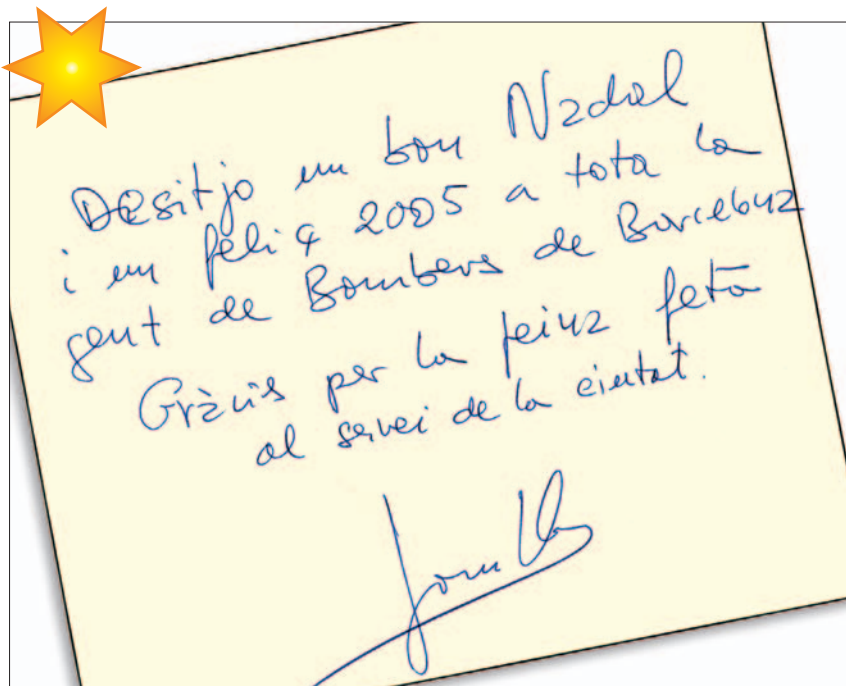 Desitjo un bon Nadal
i un feliç 2005 a tota la
gent de Bombers de Barcelona
Gràcies per la feina feta
al servei de la ciutat.